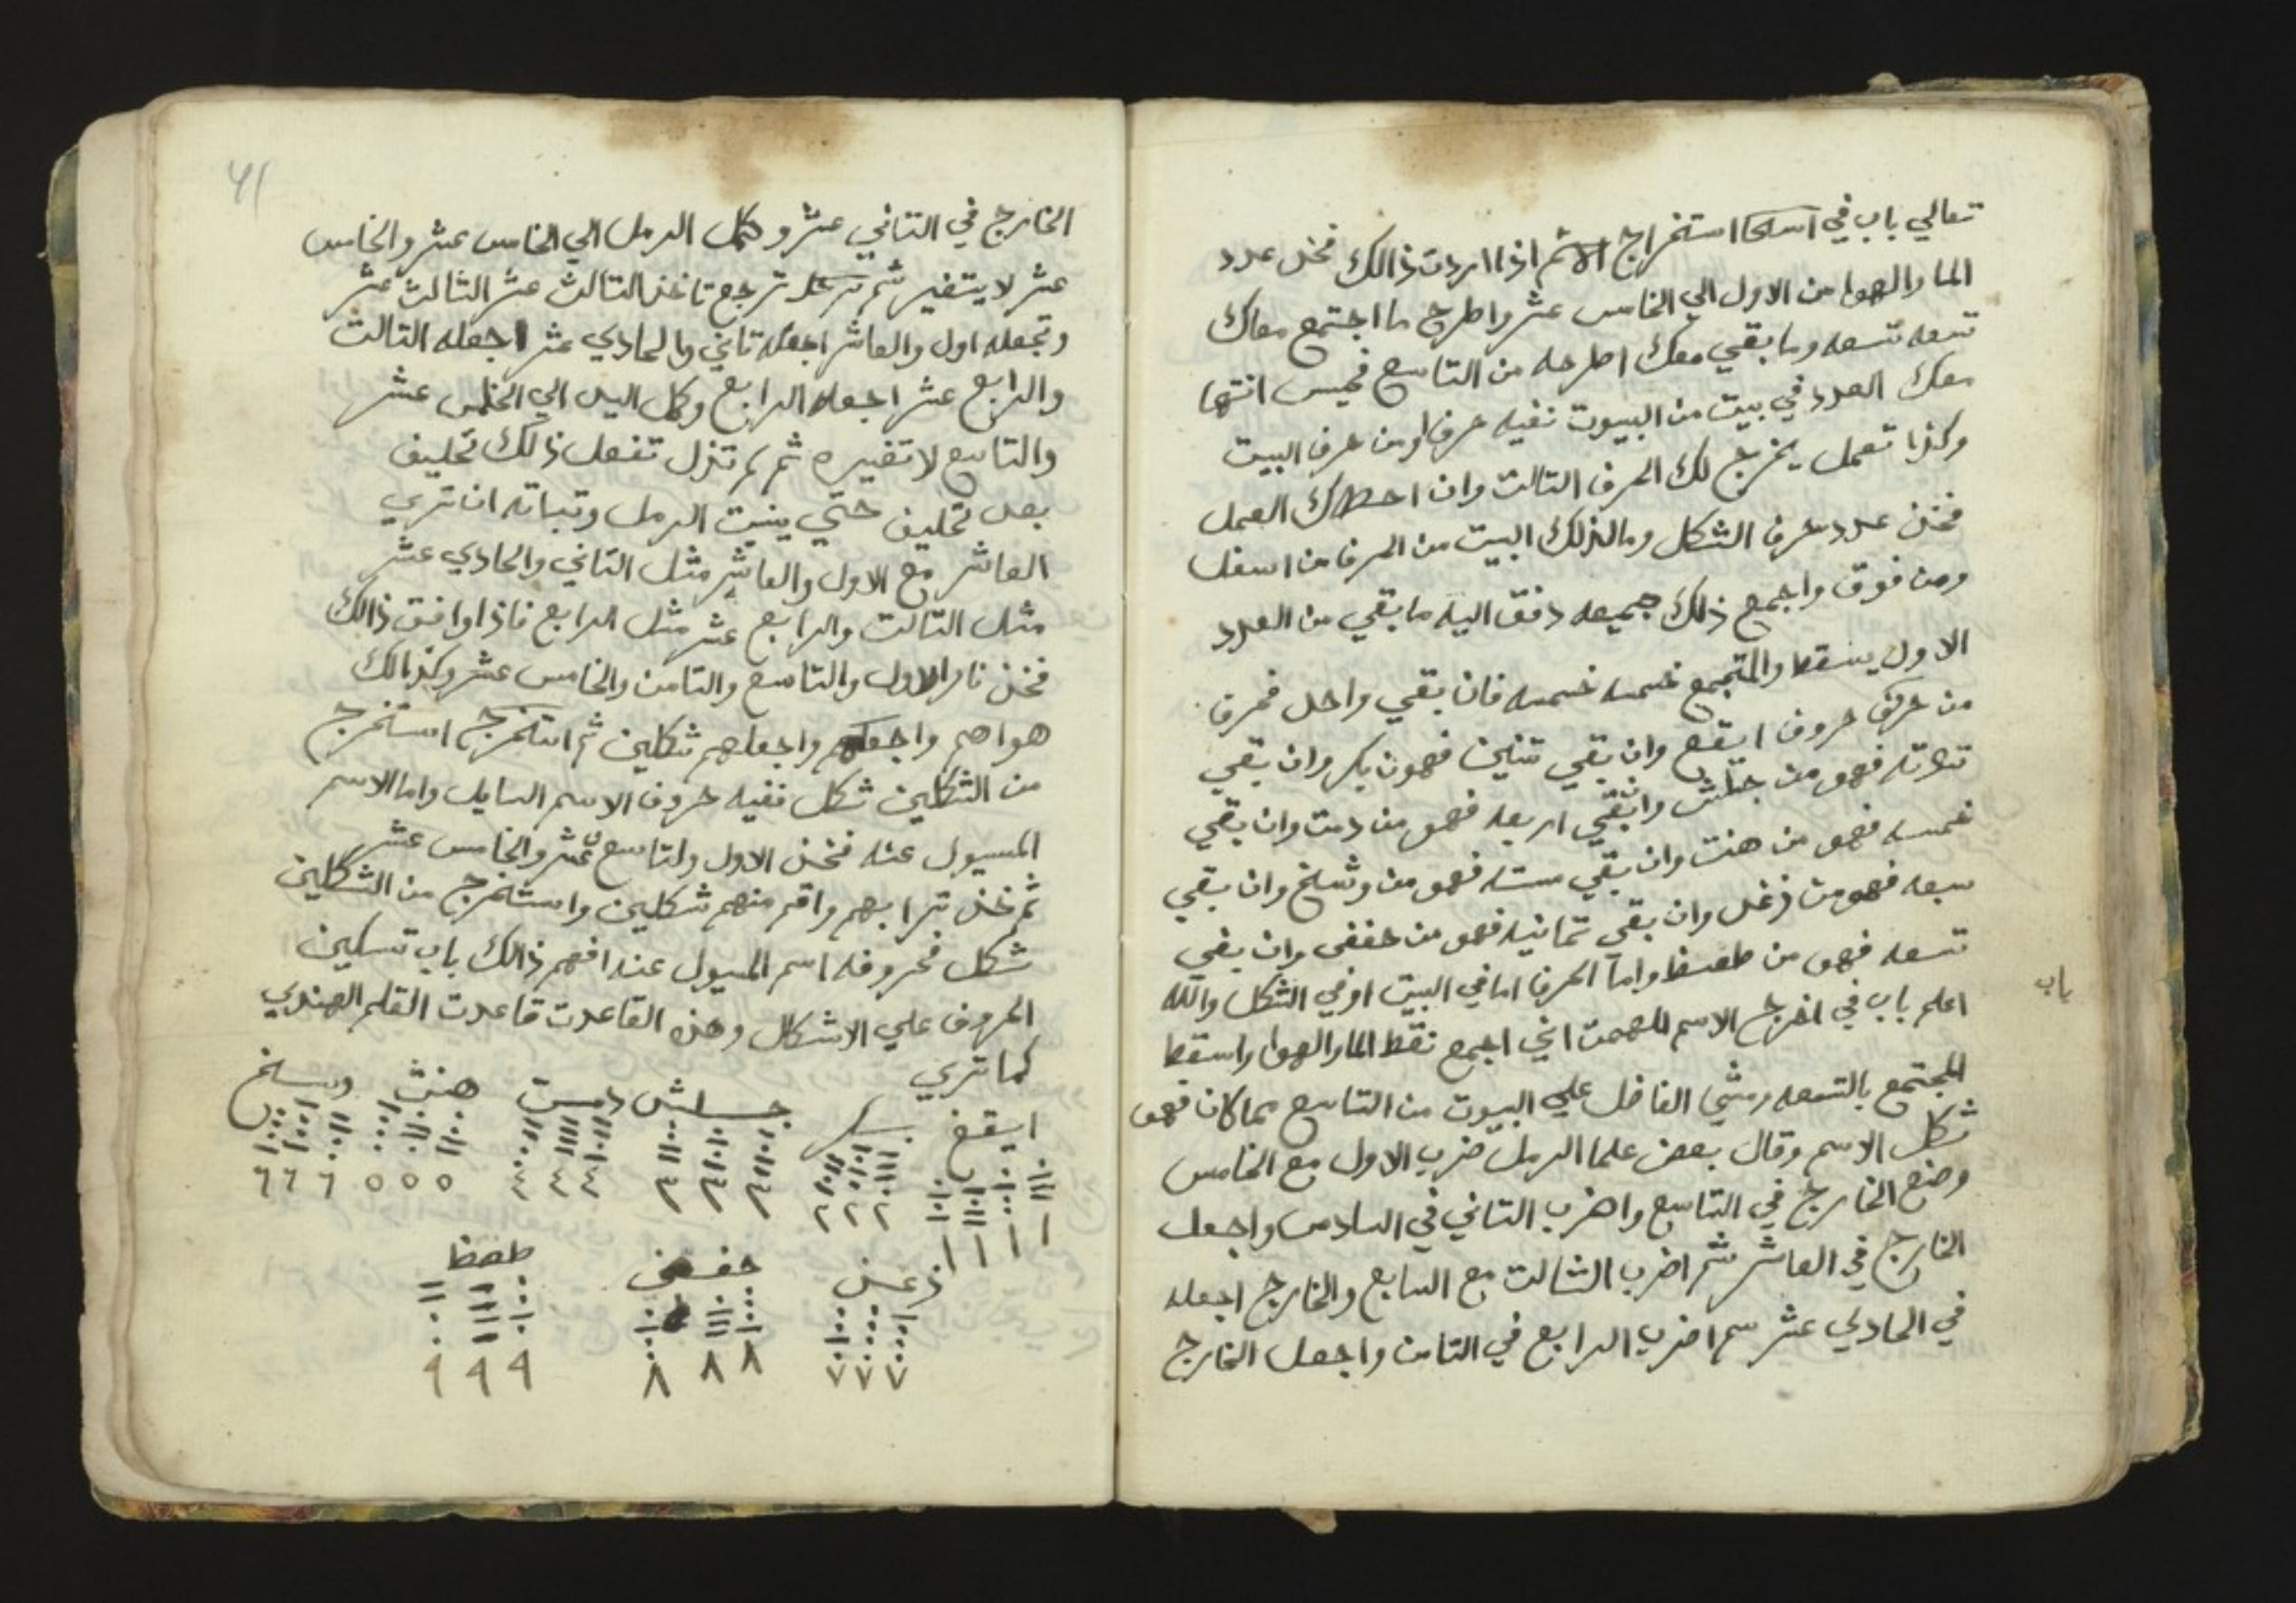 تعالي باب في استخراج الاسم اذا اردت ذالك فخذ عدد
الما والهوا من الاول الي الخامس عشر واطرح ما اجتمع معاك
تسعه تسعه وما بقي معك اطرحه من التاسع فحيس انتها
معك العدد في بيت من البيوت نفيه حرف او من حرف البيت
وكذا تعمل يخرج لك الحرف التالت وان العمل
فخذ عدد حرف الشكل وما لذلك البيت من الحرف من اسفل
ومن فوق واجمع ذلك جميعه دفق اليه ما بقي من العدد
الاول يسقط والمتجمع خمسه خمسه فان بقي واحد فحرف
من حروف ايقغ وان بقي تنين فهو من بكر وان بقي
تلاته فهو من جلش وان بقي اربعه فهو من دمت وان بقي
خمسه فهو من هنث وان بقي سته فهو من وشخ وان بقي
سبعه فهو من زغد وان بقي تمانيه فهو من حفض وان بقي
تسعه فهو من طصظ واما الحرف اما في البيت او في الشكل والله
اعلم باب في اخرج الاسم اجمع نقط الما والهوا واسقط
باب
المجتمع بالتسعه ومشي الفاضل علي البيوت من التاسع مما كان فهو
شكل الاسم وقال بعض علما الرمل ضرب الاول مع الخامس
وضع الخارج في التاسع واضرب التاني في السادس واجعل
الخارج في العاشر ثم اضرب الثالت مع السابع والخارج اجعله
في الحادي عشر سم اضرب الرابع في التامن واجعل الخارج
٤١
الخارج في التاني عشر وكمل الرمل الي الخامس عشر والخامس
عشر لا يتغير ثم ترجع تاخذ التالث عشر الثالث عشر
وتجعله اول والعاشر اجعله تاني والحادي عشر اجعله التالت
والرابع عشر اجعله الرابع وكمل الي الخامس عشر
والتاسع لا تغيره ثم لم تزل تفعل ذلك تحليف
بعد تحليف حتي يتبت الرمل وتباته ان تري
العاشر مع الاول والعاشر مثل التاني والحادي عشر
مثل التالت والرابع عشر مثل الرابع فاذا وافق ذالك
فخذ نار الاول والتاسع والتامن والخامس عشر وكذالك
هواهم واجعلهم واجعلهم شكلين ثم استخرج استخرج
من الشكلين شكل نفيه حروف الاسم السايل واما الاسم
المسيول عنه فخذ الاول ولتاسع عشر والخامس عشر
ثم خذ ترابهم واقم منهم شكلين واستخرج من الشكلين
شكل فحروفه اسم المسيول عنه افهم ذالك باب تسكين
الحروف علي الاشكال وهذه القاعدت قاعدت القلم الهندي
كما تري
ايقغ بكر جلش دمت هنث وسخ
١ ١ ١ ١ ٢ ٢ ٢ ٣ ٣ ٣ ٤ ٤ ٤ ٥ ٥ ٥ ٦ ٦ ٦
زعذ حفض طصظ
٧ ٧ ٧ ٨ ٨ ٨ ٩ ٩ ٩